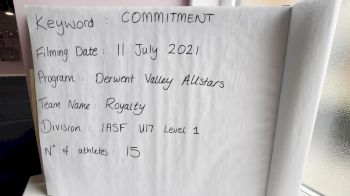 Keyword : COMMITMENT
Filming Date : 11 July 2021
Program : Derwent Valley Allstars
Team Name : Royalty
Division : IASF U17 Level 1
N° of athletes : 15